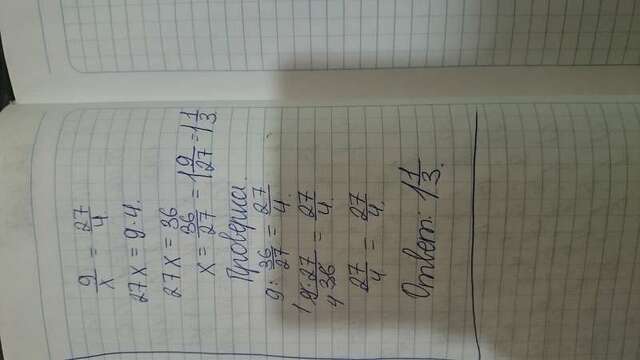 9/x = 27/4
27x = 9·4.
27x = 36
x = 36/27 = 1 9/27 = 1 1/3
Проверка.
9: 36/27 = 27/4.
1 9·27 / 4 36 = 27/4.
27/4 = 27/4.
Ответ: 1 1/3.